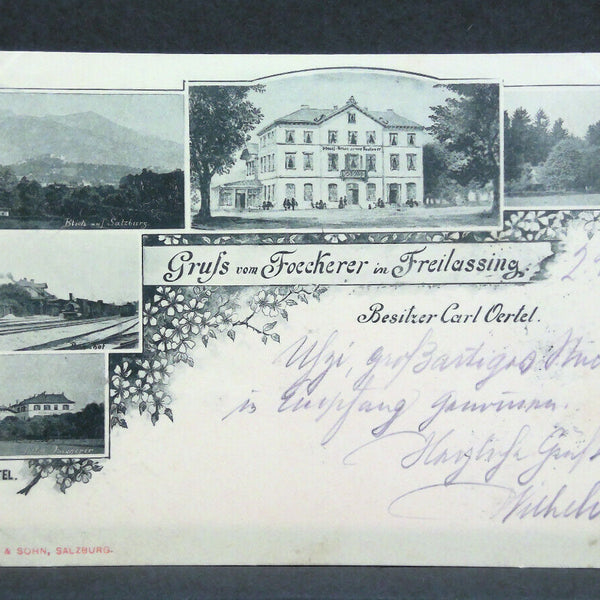 Blick auf Salzburg.
Gruß vom Foeckerer in Freilassing.
Besitzer Carl Oertel.
großartiges
in Empfang genommen.
Herzliche Grüß
Wilhelm
TEL.
& SOHN, SALZBURG.